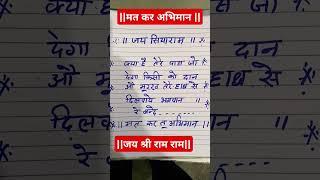 ||मत कर अभिमान ||
|| जय सियाराम ||
क्या है तेरे पास जो
देगा किसी को दान
औ मूरख तेरे हाथ से
दिलवाये भगवान ||
रे बन्दे
|| मत कर तू अभिमान ||
||जय श्री राम राम||